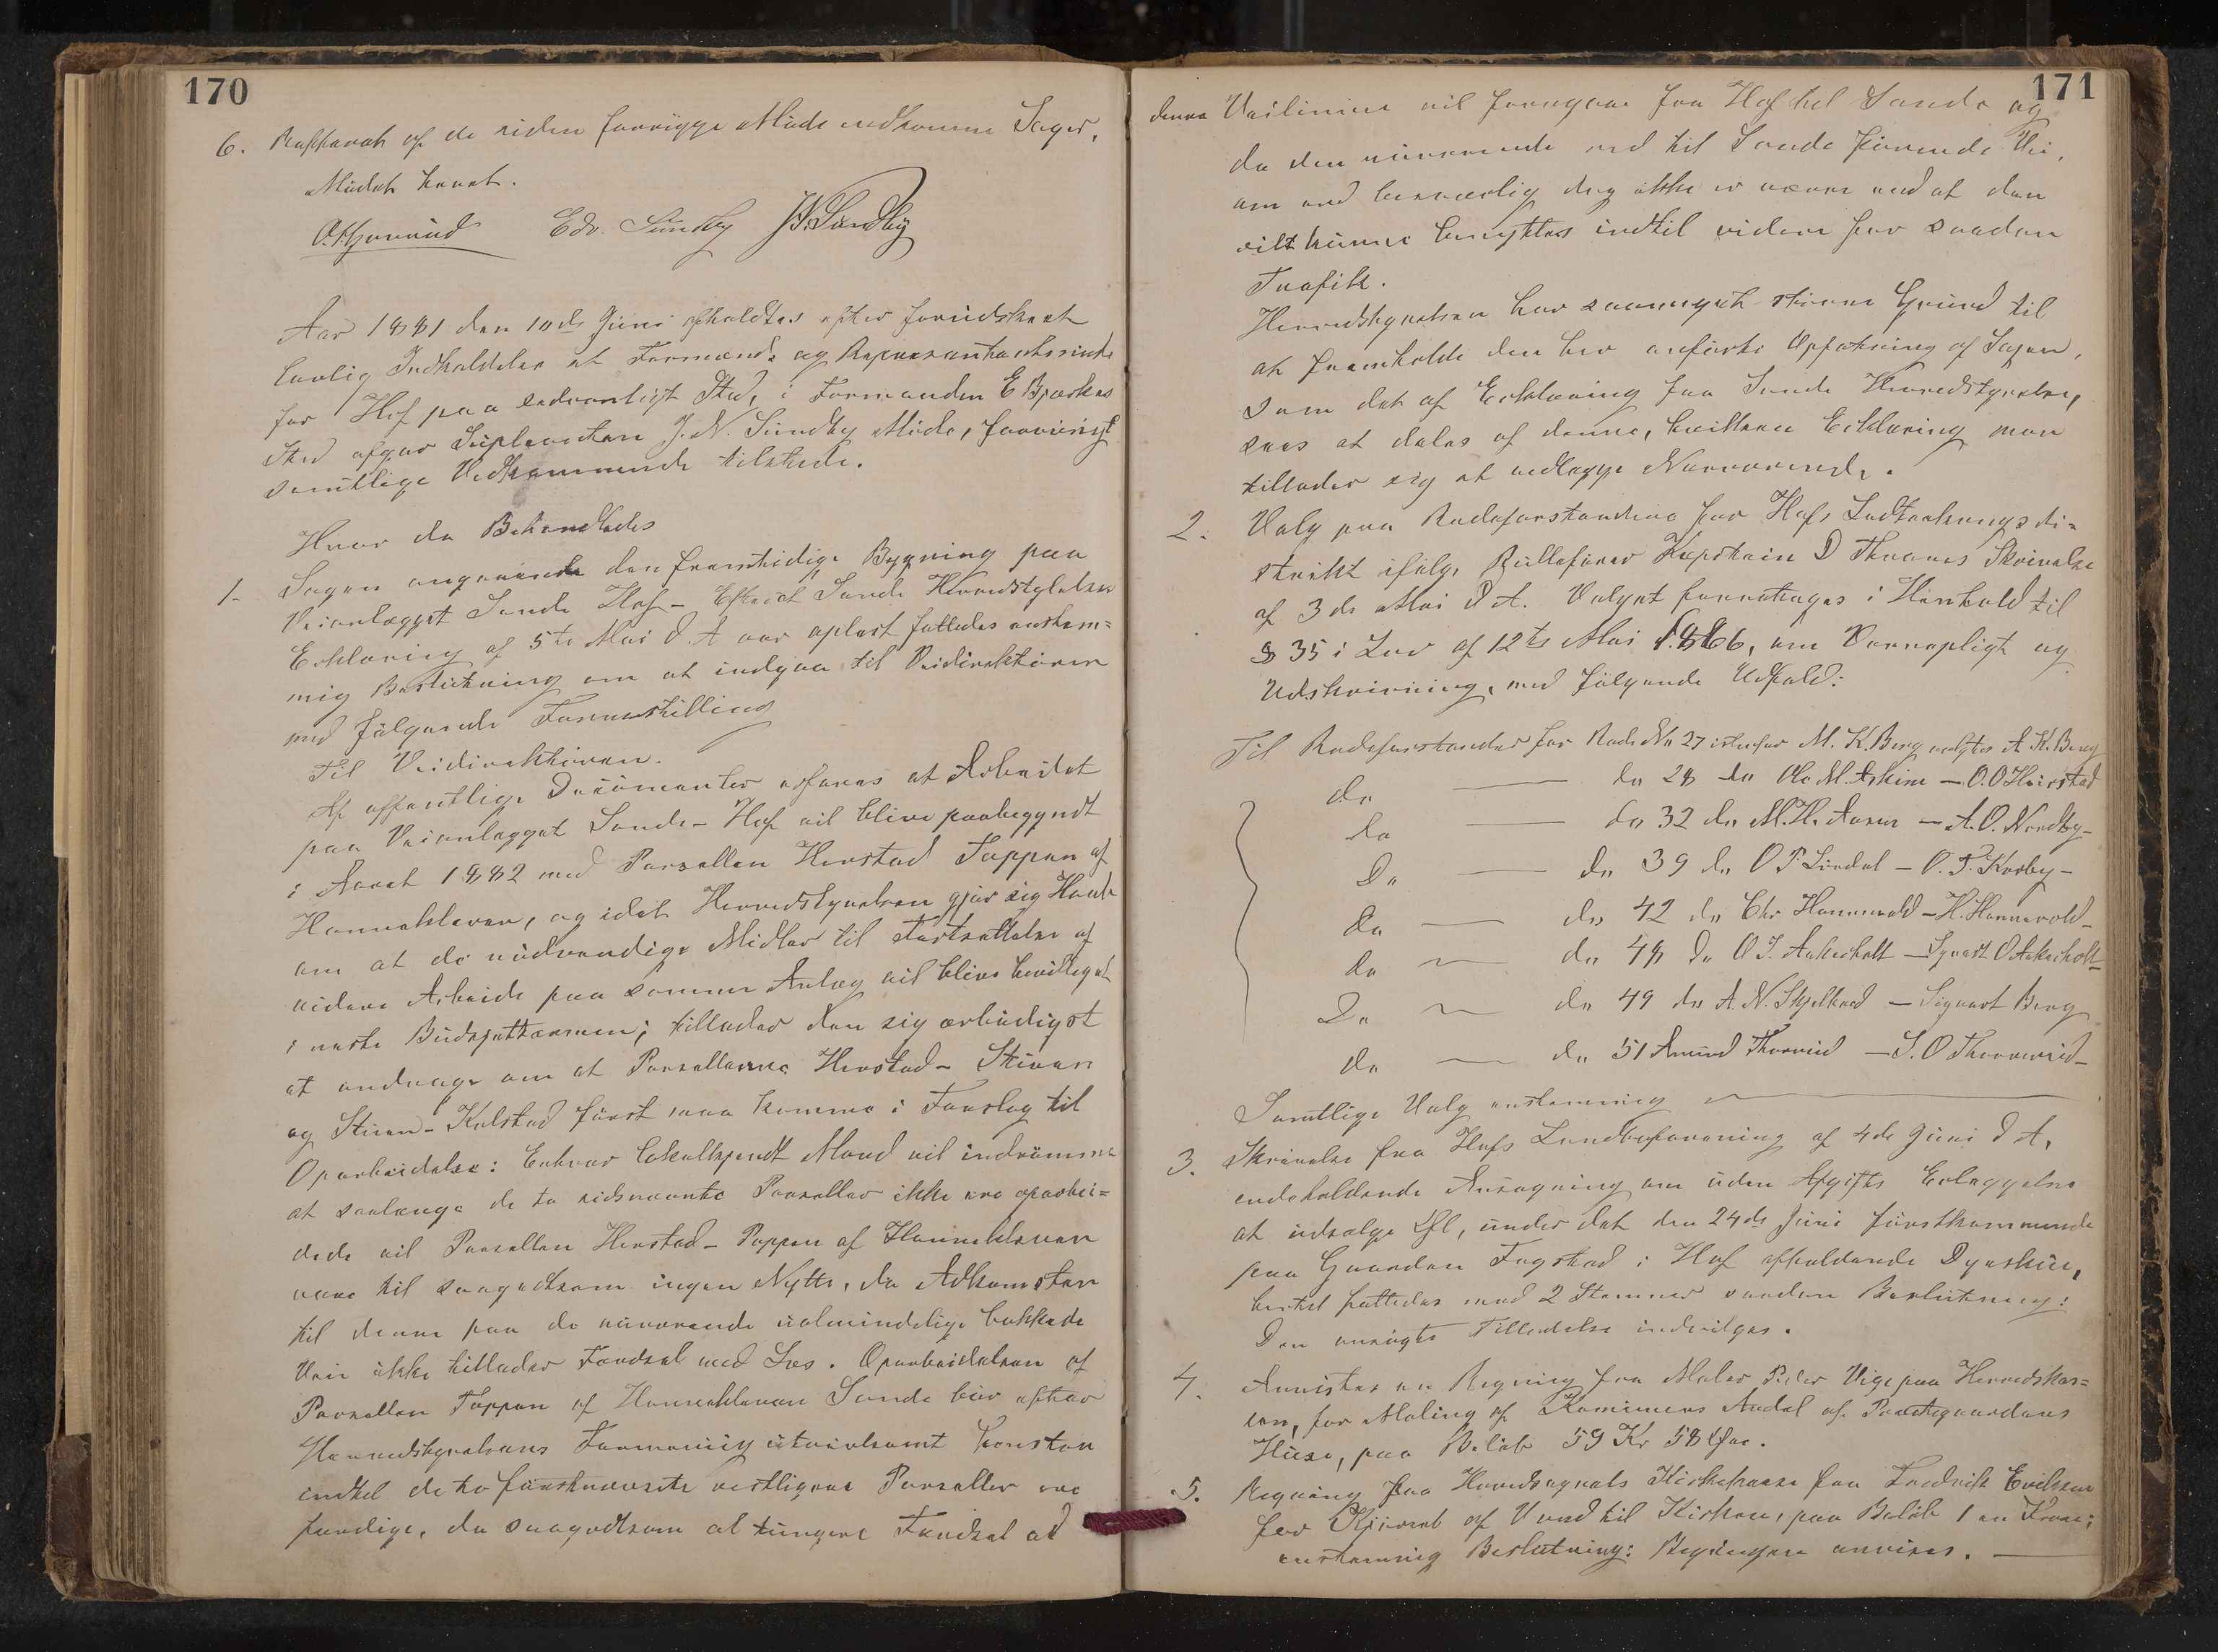 170
6. Refferat af de siden forrigge Møde indkomne Sager,
Mødet hævet.
Edv. Sundby J.N. Sundby
Aar 1881 den 10de Juni afholdtes efter forudskeet
lovlig Indkaldelse et Formænds og Repræsentantskabsmøde
for Hof paa sedvanligt Sted, i Formanden E Bjerkøes
Sted afgav Suplianten J. N. Sundby Møde, forøvrigt
samtlige Vedkommende tilstede.
Hvor da Behandledes
1. Sagen angaaende den fremtidige Bygning paa
Veianlægget Sande Hof - Efterat Sande Herredstyrelses
Erklæring af 5te Mai d. A var oplæst fattedes enstem=
mig Beslutning om at indgaa til Veidirektøren
med følgende Foranstilling
Til Veidirektøren.
Af offentlige Dokumenter erfares at Arbeidet
paa Veianlægget Sande - Hof vil blive paabegyndt
i Aaret 1882 med Parsellen Herstad Toppen af
Hanekleven, og idet Herredstyrelsen gjør sig Haab
om at de nødvendige Midler til Fortsættelse af
videre Arbeide paa samme Anlæg vil blive bevilleget
i næste Budsjettermin; tillader den sig ærbødigst
at andrage om at Parsellerne Herstad - Stiven
og Stiven - Kolstad først maa komme i Forslag til
Oparbeidelse: Enhver lokalkjendt Mand vil indrømme
at saalænge de to sidsnævnte Parseller ikke ere oparbei=
dede vil Parsellen Herstad - Toppen af Hanekleven
være til saagodtsom ingen Nytte, da Adkomsten
til denne paa de nuværende ualmindelige bakkede
Veie ikke tillader Færdsel med Læs. Oparbeidelsen af
Parsellen Toppen af Hanekleven Sande bør efter
Herredstyrelsens Formening utvivlsomt
indtil de to førstnævnte vestligere Parseller ere
færdige, da saagodtsom al tungere Færdsel ad
171
denne Veilinie vil foregaa fra Hof til Sande og
da den nuværende ned til Sande førende Vei,
om end besværlig dog ikke er værre end at den
vilt kunne benyttes indtil videre for saadan
Trafik.
Herredstyrelsen har saameget større Grund til
at fremholde den her anførte Opfatning af Sagen,
som det af Erklæring fra Sande Herredstyrelse,
sees at deles af denne, hvilken Erklæring man
tillader sig at vedlægge Nærværende.
2. Valg paa Rodeforstandere for Hofs Ledtrækningsdi=
strikt ifølge Rullefører Kaptain D Thranes Skrivelse
af 3de Mai d A. Valget foretages i Henhold til
§ 35 i Lov af 12te Mai 1866, om Værnepligt og
Udskrivning, med følgende Udfald:
Til Rodeforstander for Rode No 27 istedfor M. K. Berg valgtes A K. Berg
do — do 28 do Ole M. Askim — O. O Heirstad
do — do 32 do M. H. Aasen — A. O. Nordby -
Do — do 39 do O P Lindal - O. P. Kroby -
do — do 42 do Chr Hannevold - H. Hannevold -
do — do 48 do O J. Aakerholt — Syvert O Aakerholt -
Do — do 49 do A. N. Skjelbred — Sigvart Berg
do — do 51 Amund Thorrud — S. O Thorrud -
Samtlige Valg enstemmig
3. Skrivelse fra Hofs Landboforening af 4de Juni d A,
indeholdende Ansøgning om uden Afgifts Erlæggelse
at udsælge Øl, under det den 24de Juni førstkommende
paa Gaarden Fogstad i Hof afholdende Dyrskue,
hertil fattedes med 2 Stemmer saadan Beslutning:
Den ansøgte Tilladelse indvilges.
4. Anvistes en Regning fra Maler Peder Vige paa Herredskas=
sen, for Maling af Kommunens Andel af Præstegaardens
Huse, paa Beløb 59 Kr 58 Øre.
5. Regning fra Hovedsognets Kirkekasse fra Fredrik Eriksen
for Kjørsel af Vand til Kirken, paa Beløb 1 en Krone;
enstemmig Beslutning: Regningen anvises.